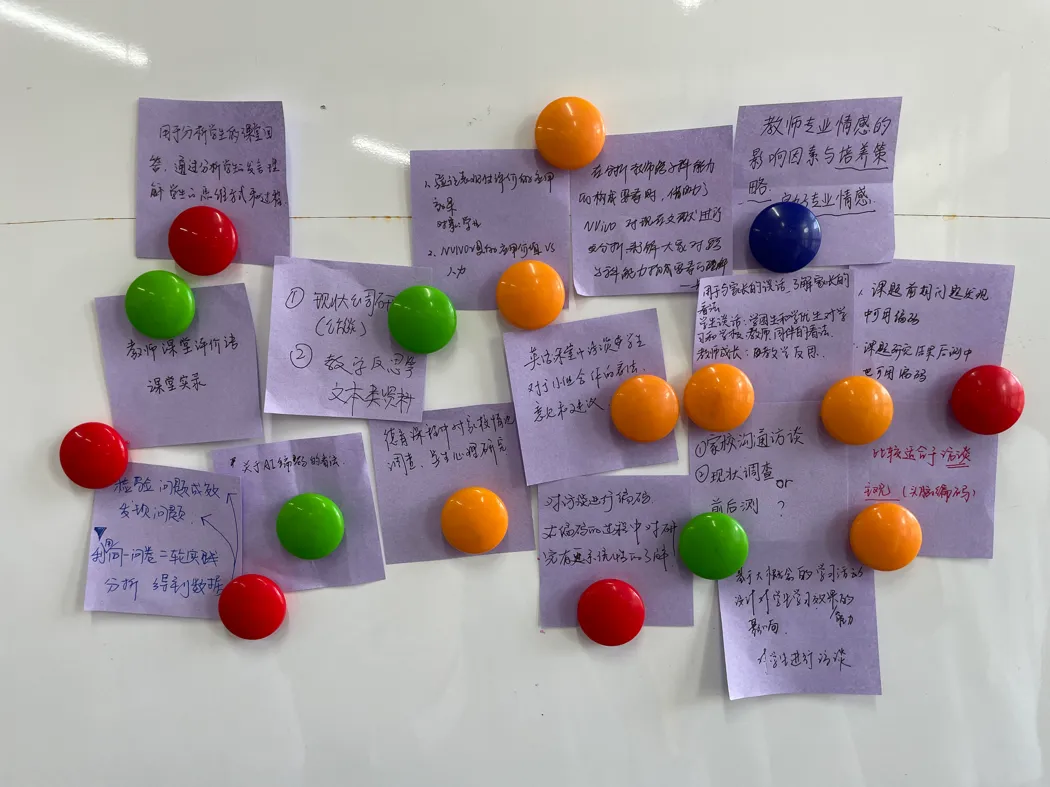 用于分析学生的课堂回
答,通过分析学生发言理
解学生的思维方式和过程
1. 强化表现性评价的应用
效果
2. NVIVO 应用价值 VS
人力
在分析教师跨学科能力
的构成要素时,借助了
NVivo 对现有文献进行
分析,了解大家对跨
学科能力构成要素的理解
教师专业情感的
影响因素与培养策
略.
专业情感
教师课堂评价语
课堂实录
① 现状调研
② 教学反思等
文本类资料
英语课堂中访谈中学生
对于小组合作的看法、
意见和建议
用于与家长的谈话,了解家长的
看法
学生谈话:学困生和学优生对学
习和学校、教师、同伴的看法.
教师成长:助教学反思.
· 课题前期问题发现
中可用编码
· 课题研究结果后测中
也可用编码
比较适合于访谈
德育课程中对于
调查、学生心理研究
①家校沟通访谈
②现状调查 or
前后测 ?
* 关于AI编码的看法.
检验问题成效
发现问题.
利用问卷二轮实践
分析 得到数据
对访谈进行编码
在编码的过程中对研
究有更系统性的了解
基于大概念的学习活动
设计对学生学习效果的
能力
影响.
对学生进行访谈